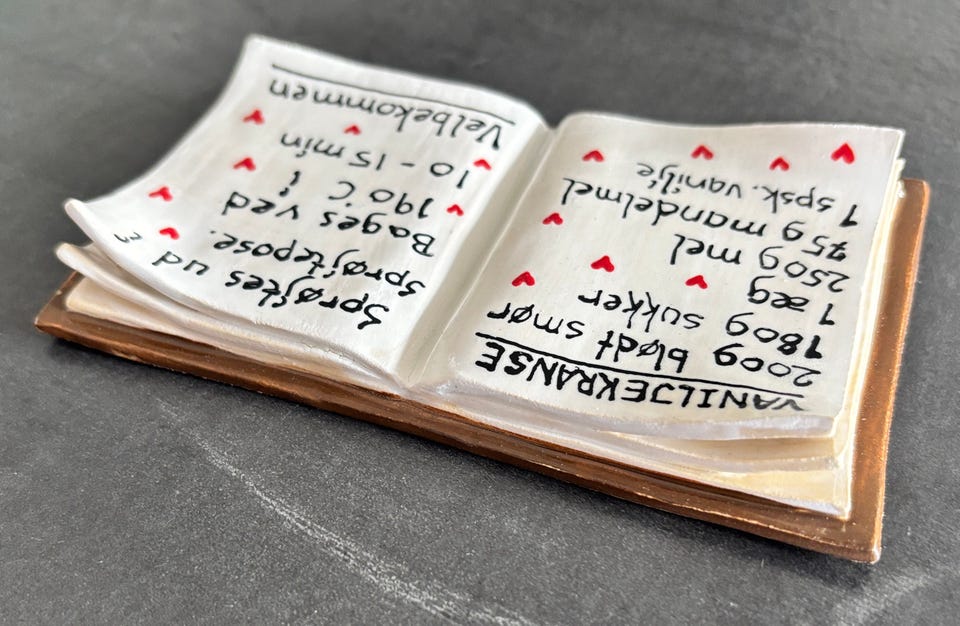 VANILJEKRANSE
200g blødt smør
180g sukker
1 æg
250g mel
75g mandelmel
1 spsk. vanilje
Sprøjtes ud
Sprøjtepose.
Bages ved
190°C i
10 - 15 min
Velbekommen